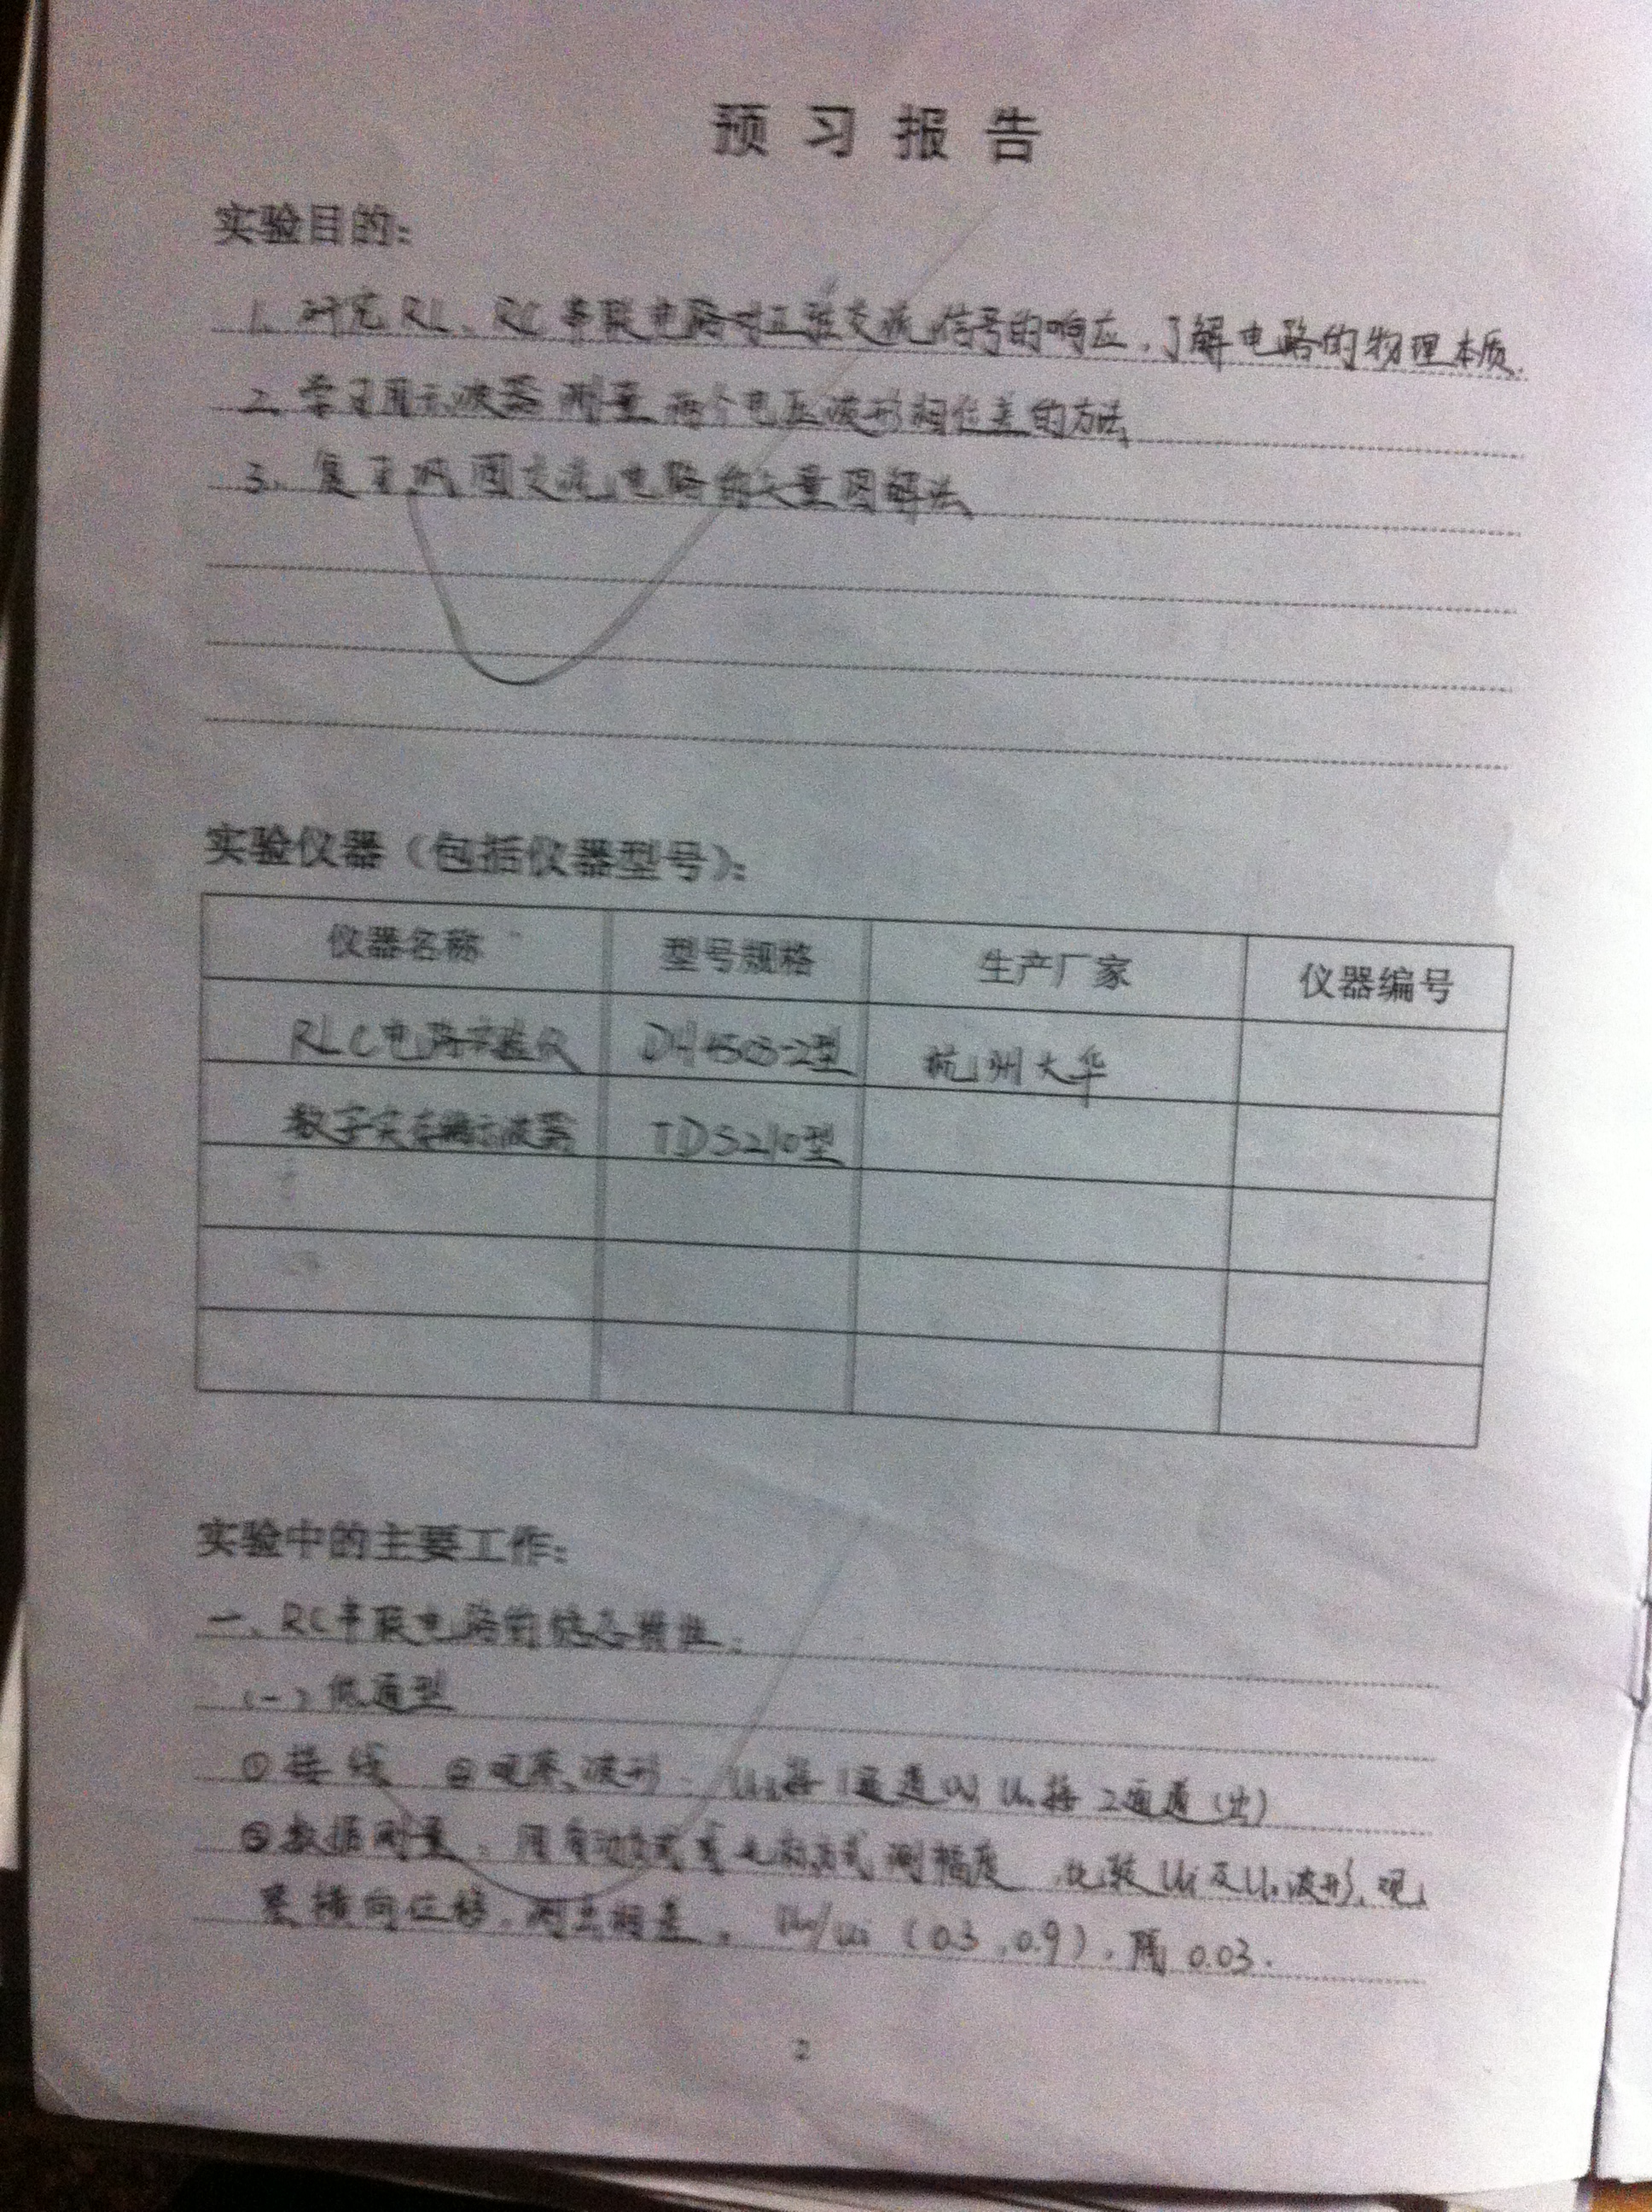 预习报告
实验目的：
1. 研究RL、RC串联电路对正弦交流信号的响应，了解电路的物理本质.
2. 学习用示波器测量两个电压波形相位差的方法
3. 复习巩固交流电路的矢量图解法
实验仪器（包括仪器型号）：
仪器名称 型号规格 生产厂家 仪器编号
RLC电路实验仪 DH4503-2型 杭州大华
数字实存储示波器 TDS210型
实验中的主要工作：
一、RC串联电路的稳态特性.
(一)低通型
①接线 ②观察波形. 接1通道 接2通道(出)
③数据测量. 测幅度 比较Ui及Uo波形, 观
察横向位移, 测出相差. Uo/Ui (0.3, 0.9). 隔0.03.
2